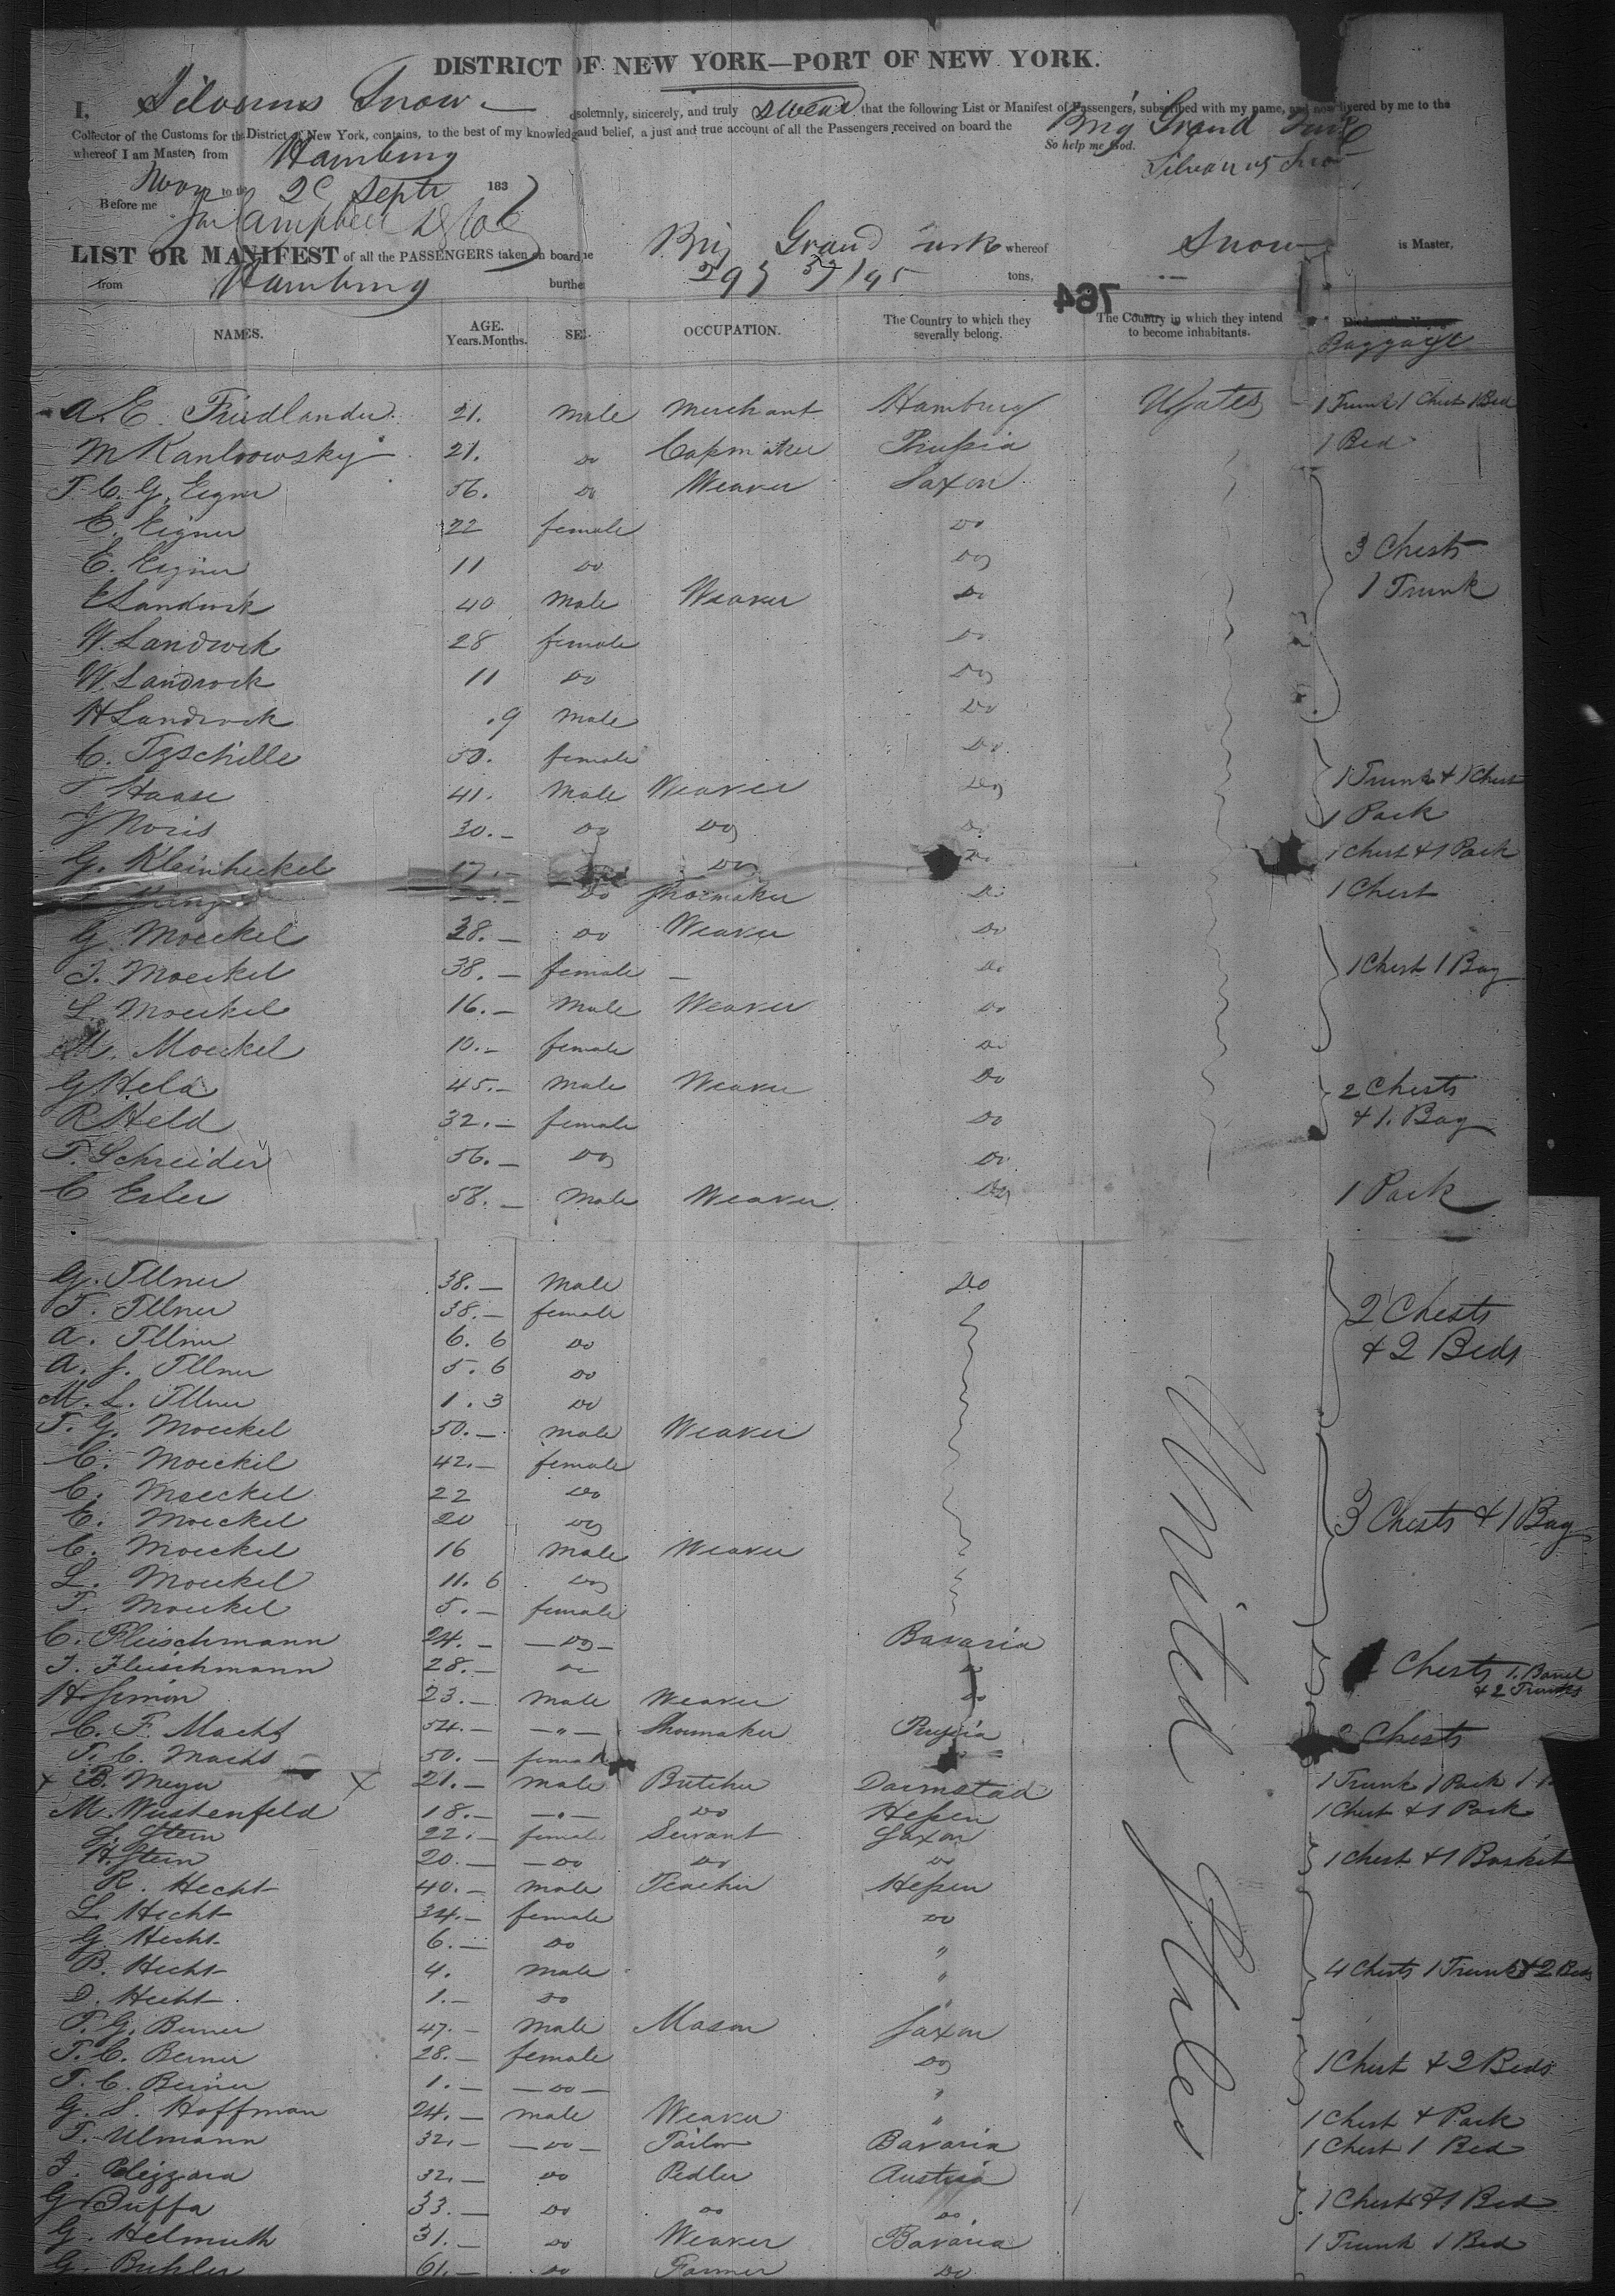 DISTRICT OF NEW YORK—PORT OF NEW YORK.
I, Silvanus Snow solemnly, sincerely, and truly swear that the following List or Manifest of Passengers, subscribed with my name, and now delivered by me to the
Collector of the Customs for the District of New York, contains, to the best of my knowledge and belief, a just and true account of all the Passengers received on board the Brig Grand Turk
whereof I am Master, from Hamburg So help me God.
Silvanus Snow
Sworn to the 20 Septr 183
Before me
LIST OR MANIFEST of all the PASSENGERS taken on board the Brig Grand Turk whereof Snow is Master,
from Hamburg burthen tons,
764
NAMES. AGE. Years. Months. SEX. OCCUPATION. The Country to which they severally belong. The Country in which they intend to become inhabitants. Baggage
A. E. Friedlander 21. male Merchant Hamburg UStates 1 Trunk 1 Chest 1 Bed
M Kantrowsky 21. Do Capmaker Prussia 1 Bed
T. C. G. Eigner 56. Do Weaver Saxon
E. Eigner 22 female Do
E. Eigner 11 Do Do 3 Chests
E Landrock 40 Male Weaver Do 1 Trunk
W. Landrock 28 female Do
W. Landrock 11 Do Do
H Landrock 9 Male Do
C. Tzschille 50. female Do
T Haase 41. Male Weaver Do 1 Trunk & 1 Chest
J Noris 30. Do Do Do 1 Pack
G. Kleinheckel 17. Do Do 1 Chest & 1 Pack
Do Shoemaker Do 1 Chest
G. Moeckel 38. Do Weaver Do
J. Moeckel 38. female Do 1 Chest 1 Bag
L. Moeckel 16. Male Weaver Do
M. Moeckel 10. female Do
G Held 45. Male Weaver Do 2 Chests
R Held 32. female Do & 1. Bag
T. Schreider 56. Do Do
C Esler 58. Male Weaver Do 1 Pack
G. Illner 38. Male Do
T. Illner 38. female 2 Chests
A. Illner 6. 6 Do & 2 Beds
A. J. Illner 5. 6 Do
M. L. Illner 1. 3 Do
T. G. Moeckel 50. male Weaver
C. Moeckel 42. female
C. Moeckel 22 Do
E. Moeckel 20 Do 3 Chests & 1 Bag
C. Moeckel 16 Male Weaver
L. Moeckel 11. 6 Do
T. Moeckel 5. female
United States
C. Fleischmann 24. Do Bavaria
J. Fleischmann 28. Do Do Chests 1. Barrel
& 2 Trunks
H. Simon 23. Male Weaver Do
C. F. Machts 54. " Shoemaker Prussia Chests
T. C. Machts 50. female
X B. Meyer X 21. male Butcher Darmstad 1 Trunk 1 Pack 1
M. Wustenfeld 18. " Do Hessen 1 Chest & 1 Pack
S. Stern 22. female Servant Saxon
H. Stern 20. Do Do Do 1 Chest & 1 Basket
R. Hecht 40. male Teacher Hessen
L. Hecht 34. female Do
G. Hecht 6. Do "
B. Hecht 4. male " 4 Chests 1 Trunk & 2 Beds
D. Hecht 1. Do "
T. G. Berner 47. male Mason Saxon
T. C. Berner 28. female Do 1 Chest & 2 Beds
T. C. Berner 1. Do "
G. S. Hoffman 24. male Weaver " 1 Chest & Pack
T. Ulmann 32. Do Tailor Bavaria 1 Chest 1 Bed
J. Pelizzara 32. Do Pedler Austria
G Buffa 33. Do Do Do 1 Chest & 1 Bed
G. Helmuth 31. Do Weaver Bavaria 1 Trunk 1 Bed
G. Buhler 61. Do Farmer Do